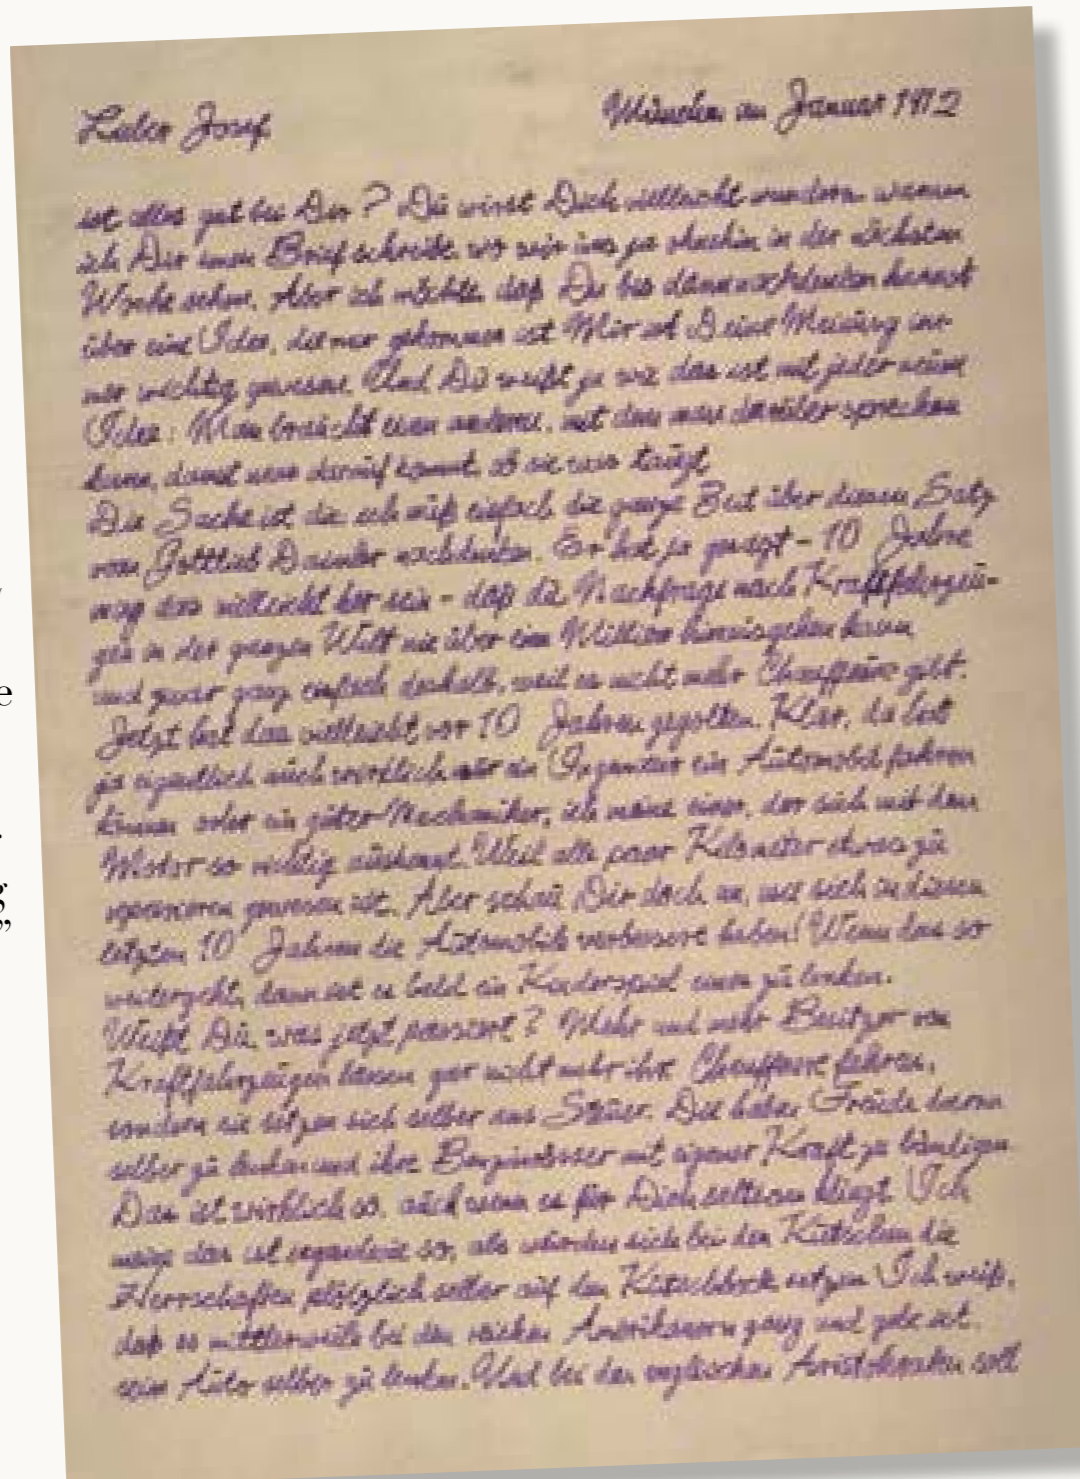 Lieber Josef.
München im Januar 1912
ist alles gut bei Dir? Du wirst Dich vielleicht wundern warum
ich Dir einen Brief schreibe, wo wir uns ja ohnehin in der nächsten
Woche sehen. Aber ich möchte, daß Du bis dann nachdenken kannst
über eine Idee, die mir gekommen ist. Mir ist Deine Meinung im-
mer wichtig gewesen. Und Du weißt ja wie das ist mit jeder neuen
Idee: Man braucht einen anderen, mit dem man darüber sprechen
kann, damit man darauf kommt, ob sie was taugt.
Die Sache ist die, ich muß einfach die ganze Zeit über diesen Satz
vom Gottlieb Daimler nachdenken. Er hat ja gesagt - 10 Jahre
mag das vielleicht her sein - daß die Nachfrage nach Kraftfahrzeu-
gen in der ganzen Welt nie über eine Million hinausgehen kann,
und zwar ganz einfach deshalb, weil es nicht mehr Chauffeure gibt.
Jetzt hat das vielleicht vor 10 Jahren gegolten. Klar, da hat
ja eigentlich auch wirklich nur ein Ingenieur ein Automobil fahren
können oder ein guter Mechaniker, ich meine einer, der sich mit dem
Motor so richtig auskennt. Weil alle paar Kilometer etwas zu
reparieren gewesen ist. Aber schau Dir doch an, wie sich in diesen
letzten 10 Jahren die Automobile verbessert haben! Wenn das so
weitergeht, dann ist es bald ein Kinderspiel einen zu lenken.
Weißt Du, was jetzt passiert? Mehr und mehr Besitzer von
Kraftfahrzeugen lassen gar nicht mehr ihre Chauffeure fahren,
sondern sie setzen sich selber ans Steuer. Die haben Freude daran
selber zu lenken und ihre Benzinrösser mit eigener Kraft zu bändigen.
Das ist wirklich so, auch wenn es für Dich seltsam klingt. Ich
meine das ist irgendwie so, als würden sich bei den Kutschen die
Herrschaften plötzlich selber auf den Kutschbock setzen. Ich weiß,
daß es mittlerweile bei den reichen Amerikanern gang und gebe ist,
sein Auto selber zu lenken. Und bei den englischen Aristokraten soll